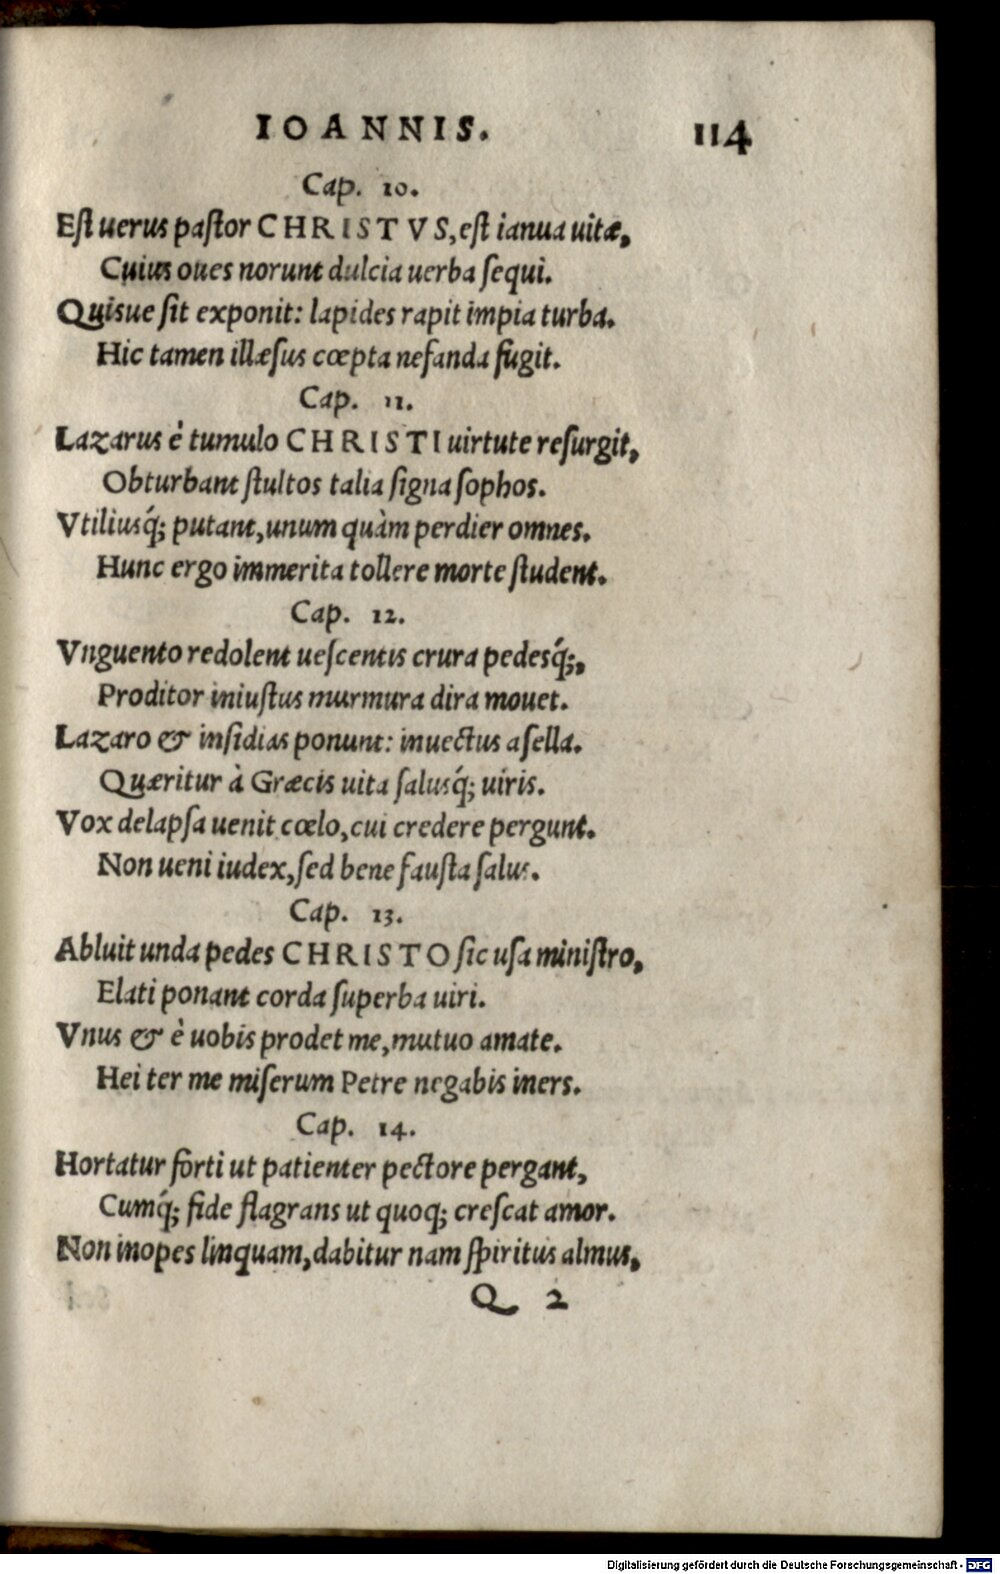 IOANNIS. 114
Cap. 10.
Eſt uerus paſtor CHRISTVS, eſt ianua uitæ,
Cuius oues norunt dulcia uerba ſequi.
Quisue ſit exponit: lapides rapit impia turba.
Hic tamen illæſus cœpta nefanda fugit.
Cap. 11.
Lazarus è tumulo CHRISTI uirtute reſurgit,
Obturbant ſtultos talia ſigna ſophos.
Vtiliusq́; putant, unum quàm perdier omnes.
Hunc ergo immerita tollere morte ſtudent.
Cap. 12.
Vnguento redolent ueſcentis crura pedesq́;,
Proditor iniuſtus murmura dira mouet.
Lazaro & inſidias ponunt: inuectus aſella.
Quæritur à Græcis uita ſalusq́; uiris.
Vox delapſa uenit cœlo, cui credere pergunt.
Non ueni iudex, ſed bene fauſta ſalus.
Cap. 13.
Abluit unda pedes CHRISTO ſic uſa miniſtro,
Elati ponant corda ſuperba uiri.
Vnus & è uobis prodet me, mutuo amate.
Hei ter me miſerum Petre negabis iners.
Cap. 14.
Hortatur forti ut patienter pectore pergant,
Cumq́; fide flagrans ut quoq; creſcat amor.
Non inopes linquam, dabitur nam ſpiritus almus,
Q 2
Digitalisierung gefördert durch die Deutsche Forschungsgemeinschaft - DFG